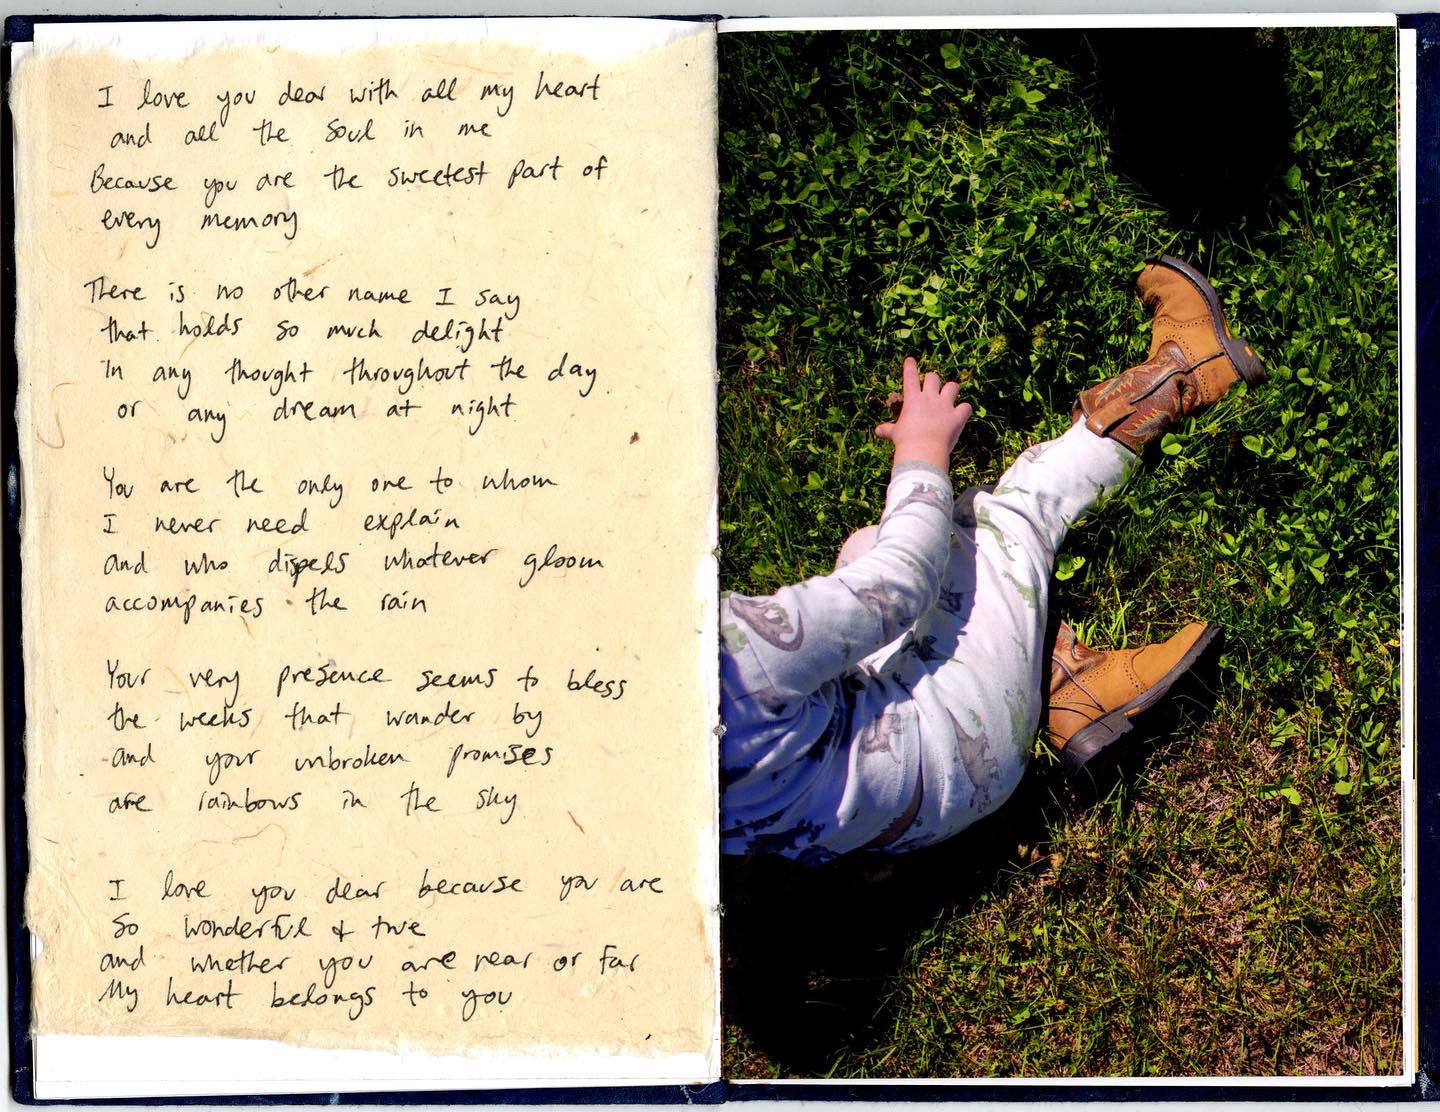 I love you dear with all my heart
and all the soul in me
Because you are the sweetest part of
every memory
There is no other name I say
that holds so much delight
In any thought throughout the day
or any dream at night
You are the only one to whom
I never need explain
and who dispels whatever gloom
accompanies the rain
Your very presence seems to bless
the weeks that wander by
and your unbroken promises
are rainbows in the sky
I love you dear because you are
so wonderful & true
and whether you are near or far
My heart belongs to you